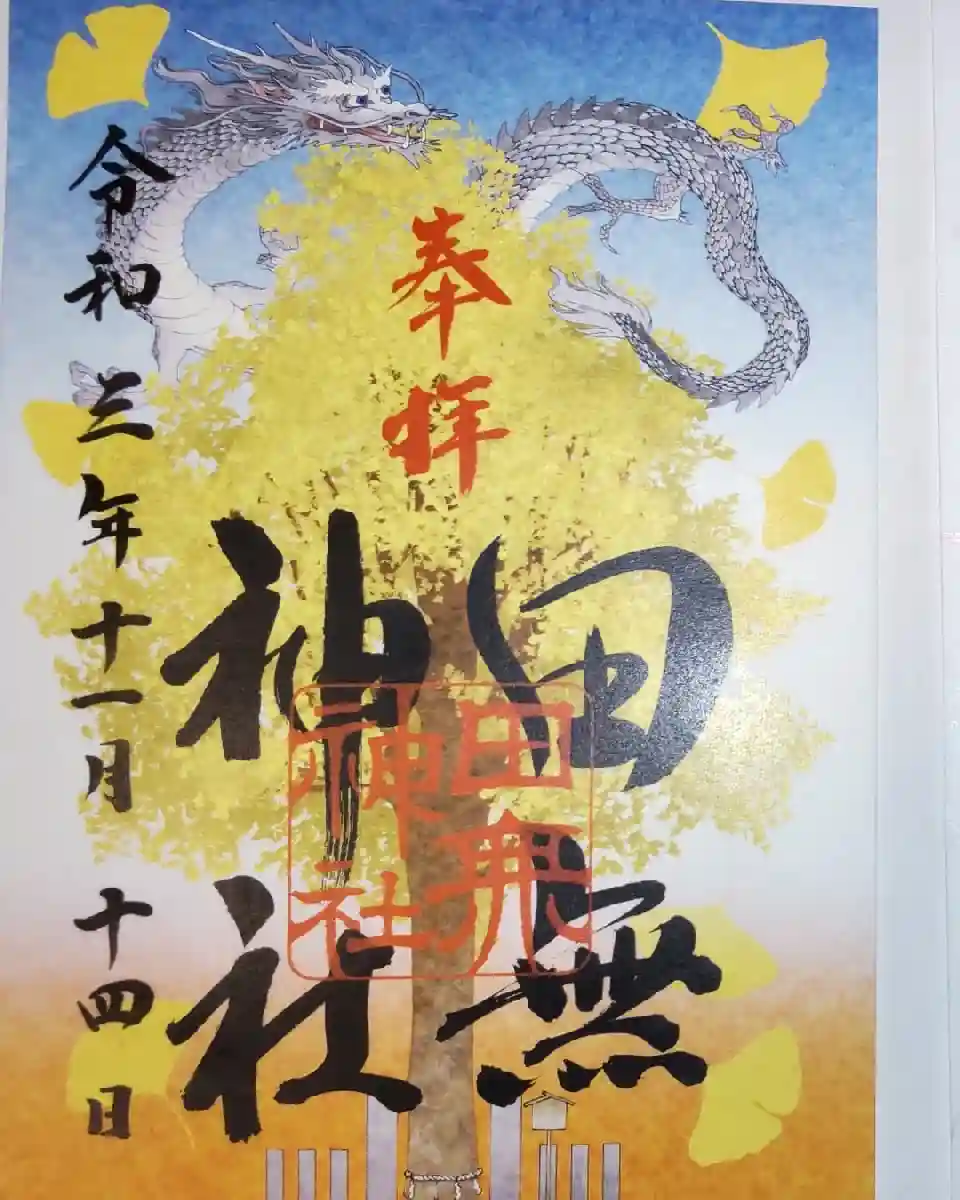 奉拝
田無
神社
田無
神社
令和三年十一月十四日